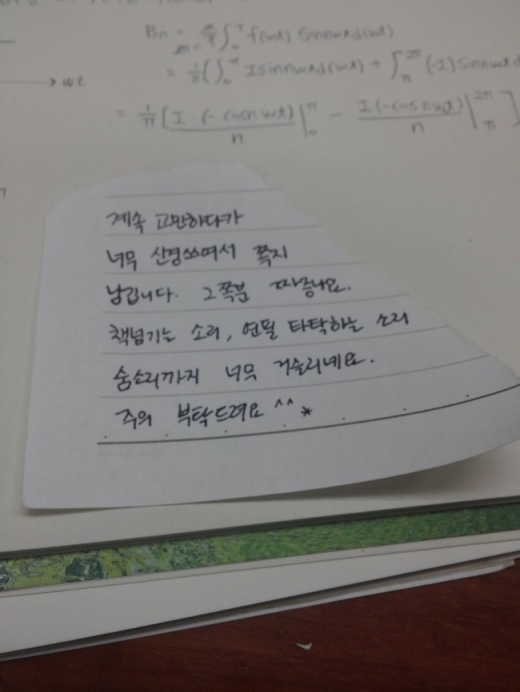 Bn = f(wt) sinnwtd(wt)
→ wt
= 1/π [∫₀^π I sinnwtd(wt) + ∫π^2π (-I) sinnwtd
= 1/π [ I·(-cosnwt)/n |₀^π - I(-cosnwt)/n |π^2π ]
계속 고민하다가
너무 신경쓰여서 쪽지
남깁니다. 그쪽분 짜증나요.
책넘기는 소리, 연필 타탁하는 소리
숨소리까지 너무 거슬리네요.
주의 부탁드려요 ^^ *